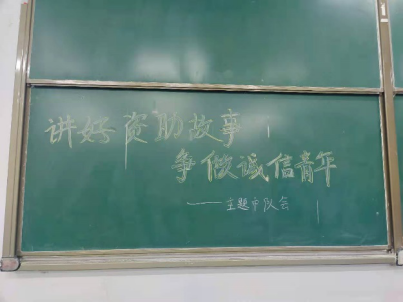 讲好资助故事
争做诚信青年
——主题中队会